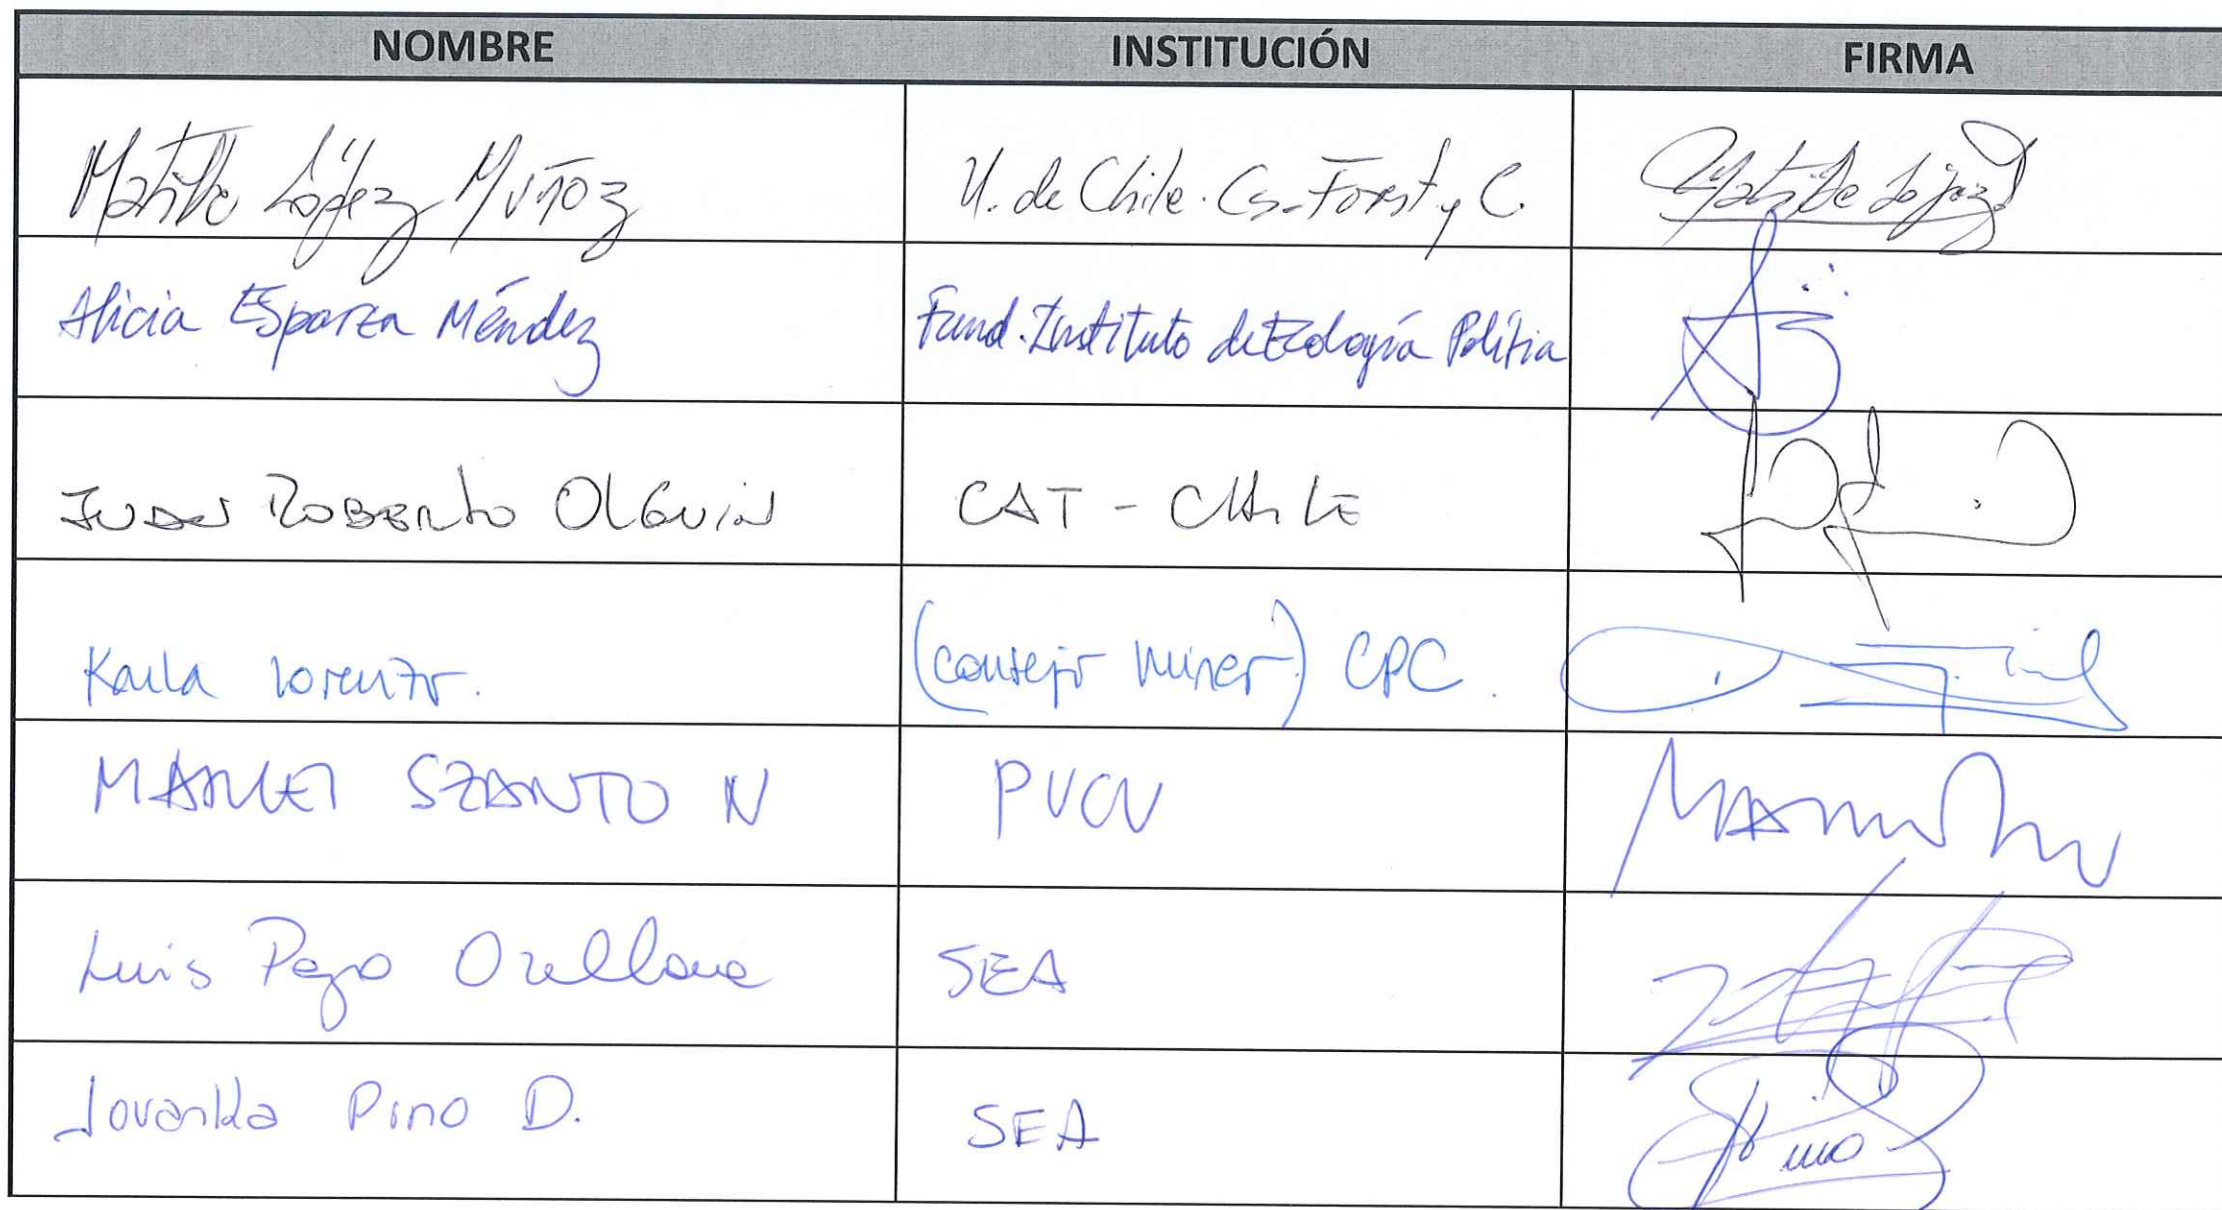 NOMBRE INSTITUCIÓN FIRMA
Matilde López Muñoz U. de Chile. Cs. Forest y C. Matilde López
Alicia Esparza Méndez Fund. Instituto de Ecología Política
Juan Roberto Olguin CAT - Chile
Karla Lorenzo. (Consejo Minero) CPC.
MARCEL SZANTO N PUCV
Luis Pezo Orellana SEA
Jovanka Pino D. SEA Pino